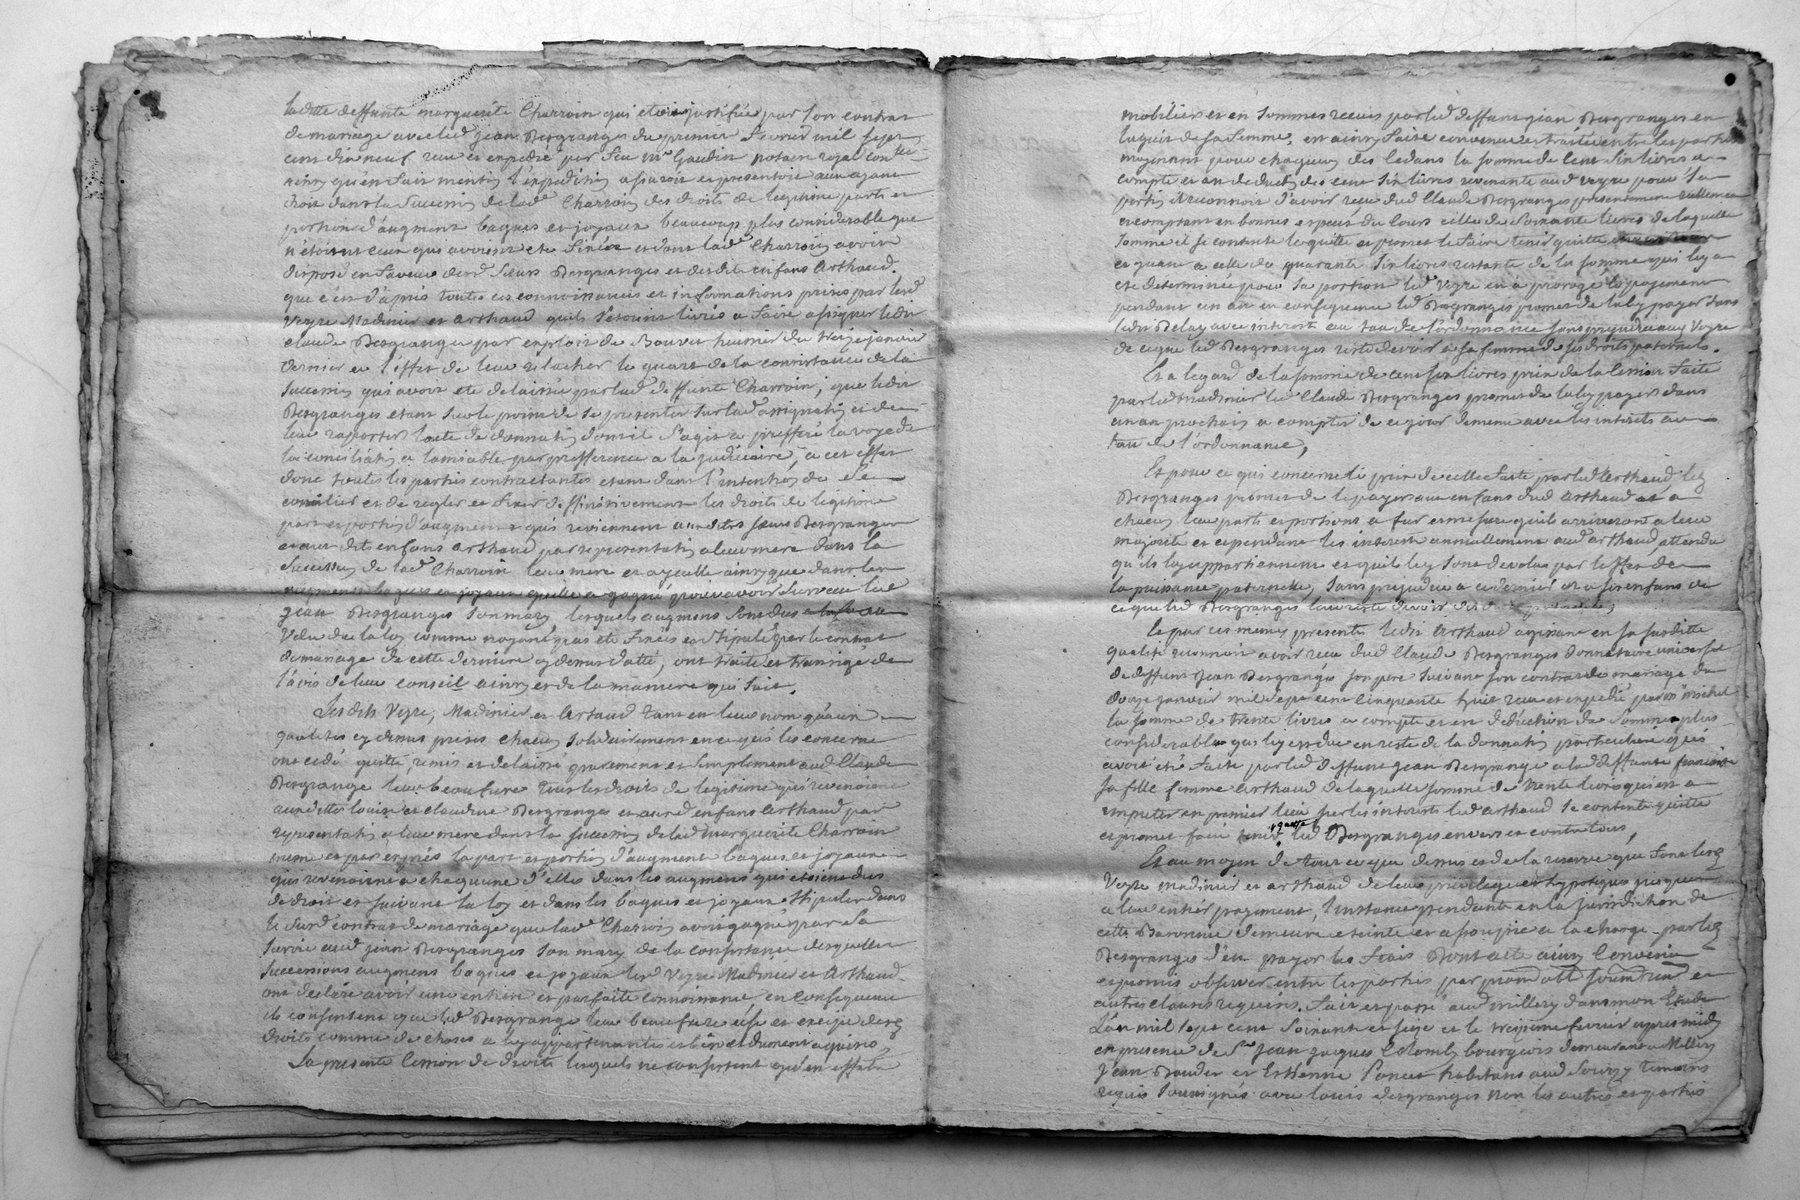 ladite deffunte marguerite Charroin qui etoit justifiée par son contrat
de mariage avec led jean Desgranges du premier fevrier mil sept
cent dix neuf receu et expedié par feu me Gaudin notaire royal
qu'en fait mention l'expedition a paroir et presentoit aux ayant
droit dans la succession de lade Charroin des droits de legitime parts et
portions d'augment bagues et joyaux beaucoup plus considerable que
n'etoient ceux qui avoient ete fixés et dont lade Charroin avoit
disposé en faveur desd soeurs Desgranges et desdits enfans Arthaud.
que c'est d'apris toutes ces connoissances et informations prises par lesd
Veyre Madinier et Arthaud quils s'etoient livrés a faire assigner ledit
claude Desgranges par exploit de Bouvet huissier du treize janvier
dernier a l'effet de leur relacher le quart de la consistance de la
succession qui avoit ete delaissée par lade deffunte Charroin, que ledit
Desgranges etant sur le point de se presenter sur lade assignation et de
leur raporter l'acte de donnation dont il s'agit a prefferé la voye de
la conciliation a lamiable par prefference a la judiciaire, a cet effet
donc toutes les parties contractantes etant dans l'intention de se
concilier et de regler et fixer deffinitivement les droits de legitime
part et portion d'augment qui reviennent auxdites soeurs Desgranges
et aux dits enfans Arthaud par representation a leur mere dans la
succession de lade Charroin leur mere et ayeulle ainsy que dans les
augments bagues et joyaux quelle a gagné pour avoir survecu led
jean Desgranges son mary, lesquels augmens sont dus
de la loy comme n'ayant pas ete fixés et stipulés par le contrat
de mariage de cette derniere cy dessus datté, ont traité et transigé de
l'avis de leur conseil ainsy et de la maniere qui suit.
Lesdits Veyre, Madinier et Artaud tant en leur nom qu'aux
qualites cy dessus prises chacun solidairement en ce qui les concerne
ont cedé quitté, remis et delaissé purement et simplement aud Claude
Desgrange leur beaufrere tous les droits de legitime qui revenoient
auxdittes louise et claudine Desgranges et auxd enfans Arthaud par
representation a leur mere dans la succession de lade marguerite Charroin
mere et par exprés la part et portion d'augment bagues et joyaux
qui revenoient a chaqu'une d'elles dans les augmens qui etoient dus
de droit et suivant la loy et dans les bagues et joyaux stipulés dans
le susd contrat de mariage que lade Charroin avoit gagné par sa
survie aud jean Desgranges son mary de la consistance desquelles
successions augmens bagues et joyaux lesd Veyre Madinier et Arthaud
ont declaré avoir une entiere et parfaite connoissance en consequence
ils consentent que led Desgrange leur beaufrere use et exige desd
droits comme de choses a luy appartenantes et bien et dument acquises
La presente cession de droits lesquels ne consistent qu'en effets
mobiliers et en sommes receues par led deffunt jean Desgranges en
laquit de sa femme, est ainsy faite convenue et traitée entre les parties
moyenant pour chaqu'un des cedans la somme de cent six livres a
compte et en deduction des cent six livres revenante aud veyre pour sa
portion il reconnoit d'avoir receu dud Claude Desgranges presentement reellement
et comptant en bonnes especes du cours celle de soixante livres de laquelle
somme il se contente le quitte et promet le faire tenir quitte
et quant a celle de quarante six livres restante de la somme qui luy a
eté determinée pour sa portion led Veyre en a prorogé le payement
pendant un an en consequence led Desgranges promet de la luy payer dans
ledit delay avec interest au taux de l'ordonnance sans prejudice aux Veyre
de ce que led Desgranges reste devoir a sa femme de ses droits paternels.
Et a legard de la somme de cent six livres prix de la cession faite
par led Madinier led Claude Desgranges promet de la luy payer dans
un an prochain a compter de ce jour dememe avec les interets au
taux de l'ordonnance,
Et pour ce qui concerne le prix de celle faite par led Arthaud led
Desgranges promet de le payer aux enfans dud Arthaud et a
chacun leur part et portions a fur et mesure quils arriveront a leur
majorité et cependant les interets annuellement aud arthaud, attendu
qu'ils luy appartiennent et quils luy sont devolus par l'effet de
la puissance paternelle, sans prejudice a ce dernier et a ses enfans de
ce que led Desgranges leur reste devoir
Et par ces memes presentes ledit Arthaud agissant en sa susditte
qualité reconnoit avoir receu dud Claude Desgranges donnataire universel
de deffunt Jean Desgranges son pere suivant son contrat de mariage du
douze janvier mil sept cent cinquante huit receu et expedié par
la somme de trente livres a compte et en deduction de sommes plus
considerables qui luy est due en reste de la donnation particuliere qui
avoit eté faite par led deffunt jean Desgrange a lade deffunte francoise
sa fille femme arthaud de laquelle somme de trente livres qui est a
imputer en premier lieu sur les interests led Arthaud se contente quitte
et promet faire tenir quitte led Desgranges envers et contre tous,
Et au moyen de tout ce que dessus et de la reserve que font lesd
Veyre madinier et arthaud de leur privilege et hypoteque jusques
a leur entier payement, l'instance pendante en la jurisdiction de
cette Baronnie demeure eteinte et assoupie a la charge par led
Desgranges d'en payer les frais Dont acte ainsy Convenu
et promis observer entre les parties par
autres clauses requises. fait et passé aud millery dans mon Etude
L'an mil sept cent soixante et seize et le treizieme fevrier apres midy
en presence de sr Jean jacques Colomb bourgeois demeurant a Millery
Jean Baudet et Estienne Poncet habitans aud Sourzy temoins
requis soussignés avec louis desgranges non les autres et parties